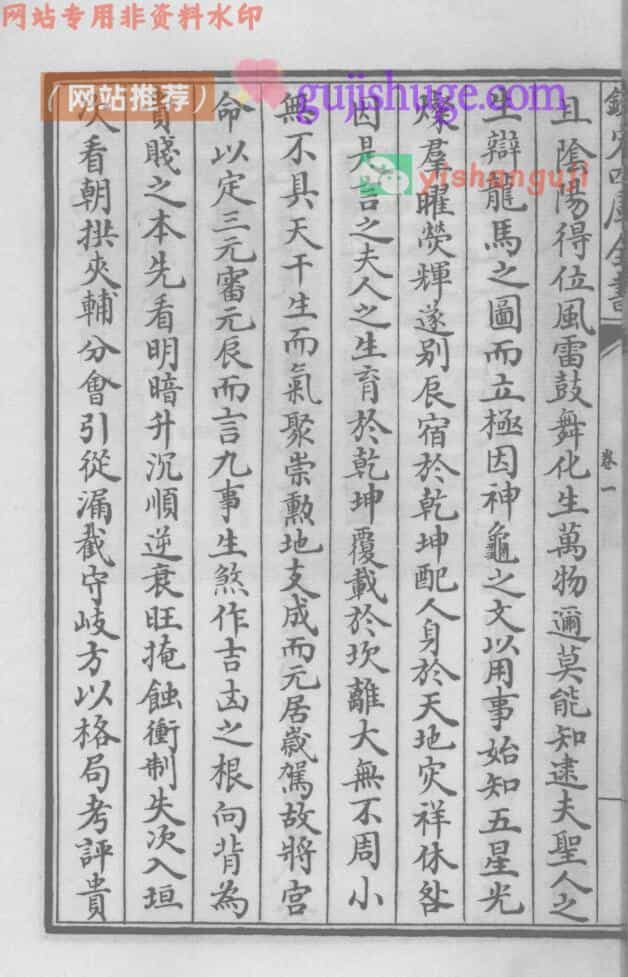 网站专用非资料水印
（网站推荐）
gujishuge.com
yishanguji
欽定四庫全書
卷一
且隂陽得位風雷鼓舞化生萬物邇莫能知逮夫聖人之
生辯龍馬之圖而立極因神龜之文以用事始知五星光
燦羣曜熒輝遂别辰宿於乾坤配人身於天地灾祥休咎
因是言之夫人之生育於乾坤覆載於坎離大無不周小
無不具天干生而氣聚崇勲地支成而元居嵗駕故將宫
命以定三元審元辰而言九事生煞作吉凶之根向背為
貴賤之本先看明暗升沉順逆衰旺掩蝕衝制失次入垣
次看朝拱夾輔分會引從漏截守岐方以格局考評貴